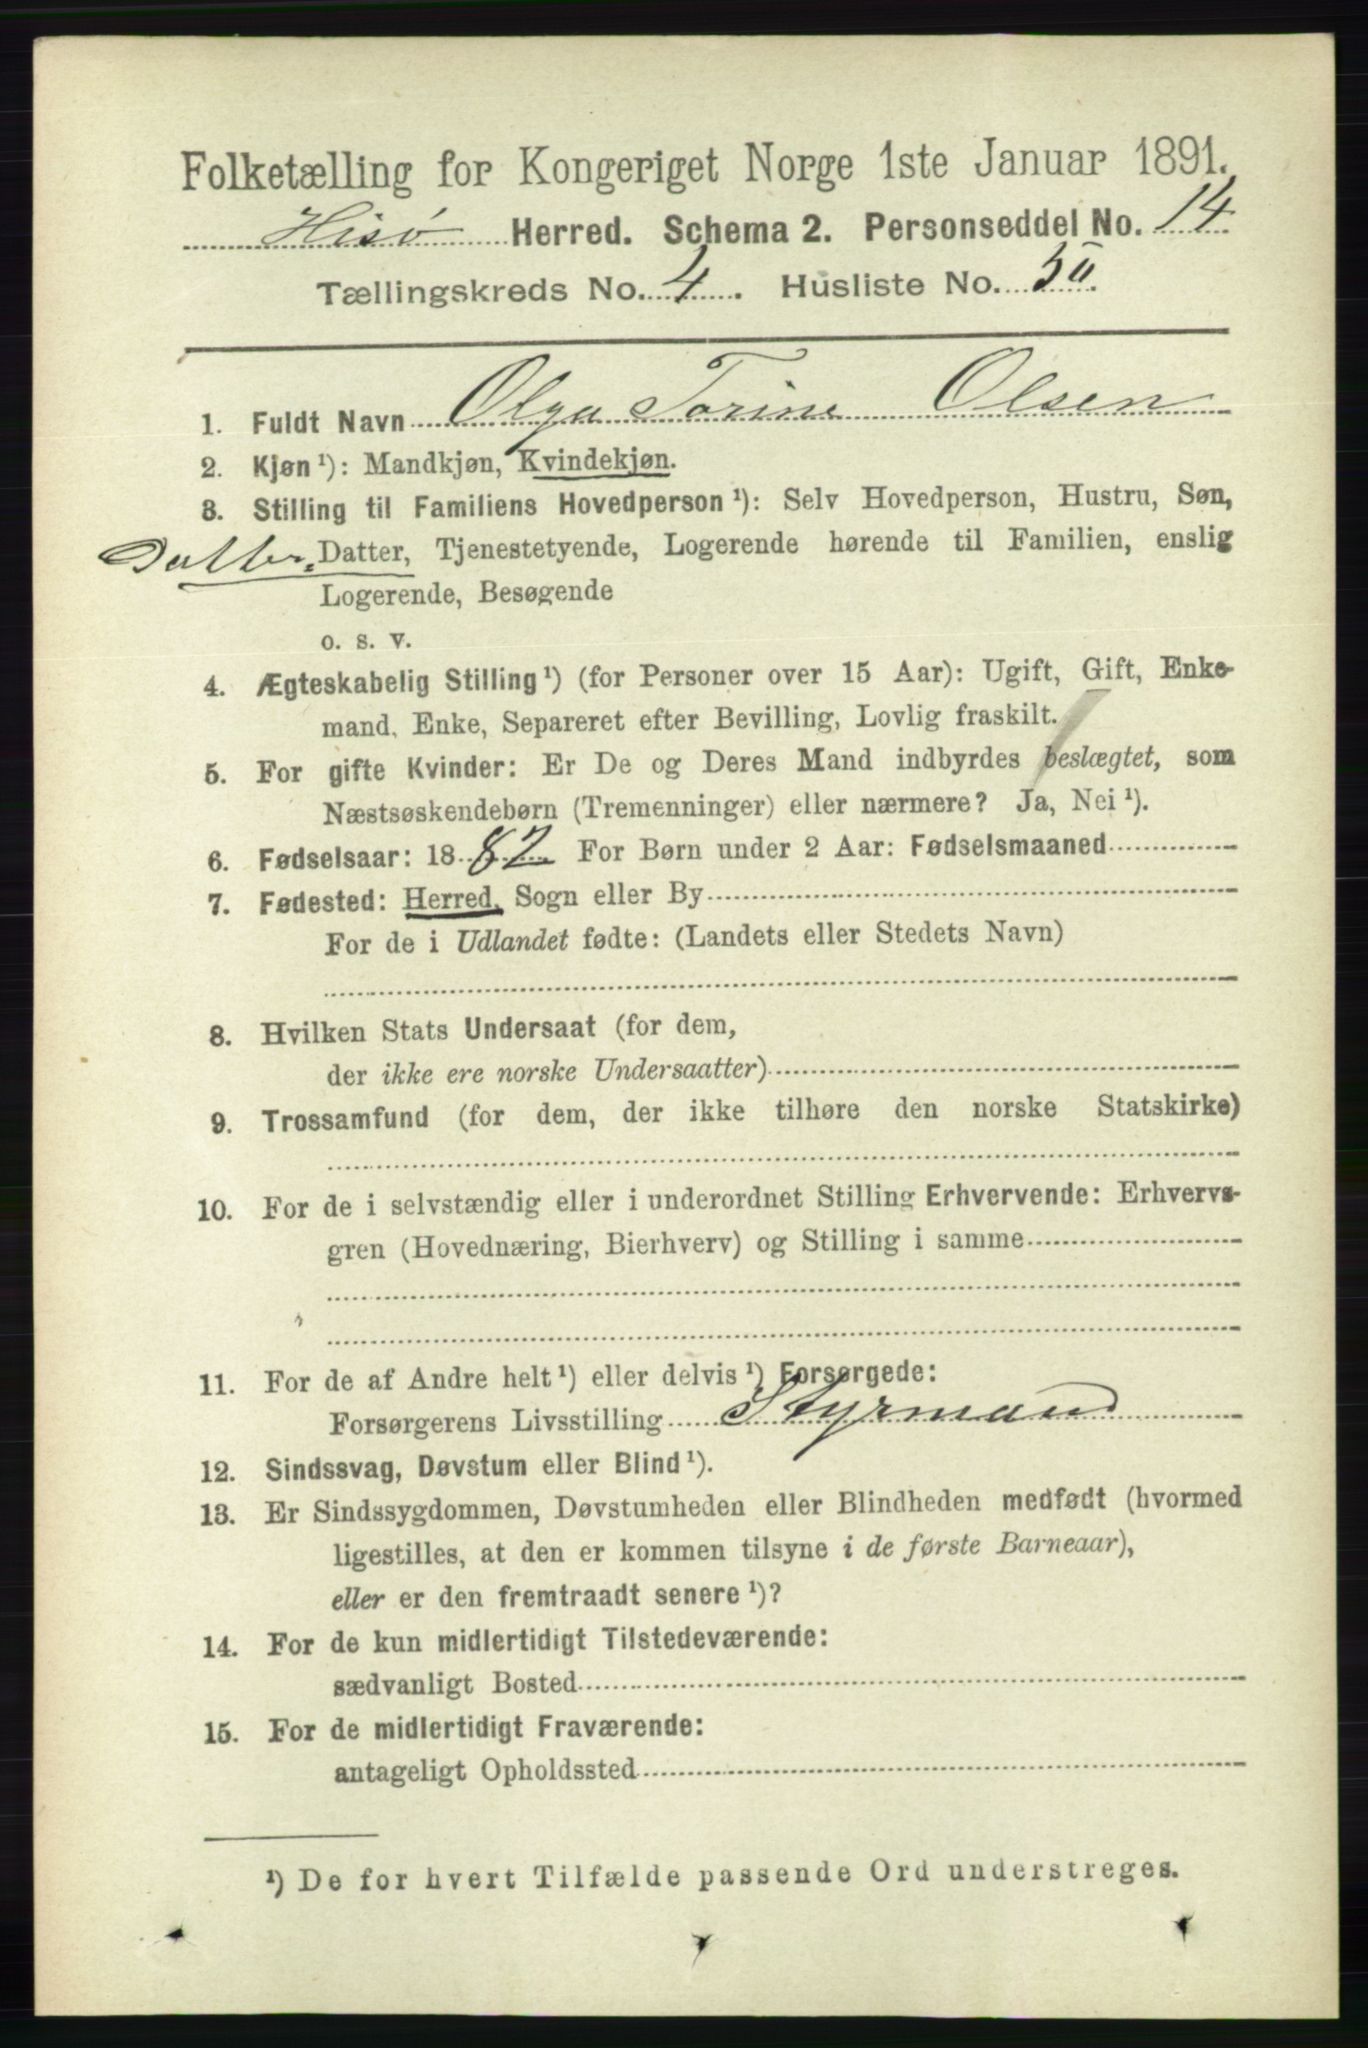 Folketælling for Kongeriget Norge 1ste Januar 1891.
Hisø Herred. Schema 2. Personseddel No. 14
Tællingskreds No. 4. Husliste No. 50.
1. Fuldt Navn Olga Torine Olsen
2. Kjøn¹): Mandkjøn, Kvindekjøn.
3. Stilling til Familiens Hovedperson¹): Selv Hovedperson, Hustru, Søn,
Datter. Datter, Tjenestetyende, Logerende hørende til Familien, enslig
Logerende, Besøgende
o. s. v.
4. Ægteskabelig Stilling¹) (for Personer over 15 Aar): Ugift, Gift, Enke-
mand, Enke, Separeret efter Bevilling, Lovlig fraskilt.
5. For gifte Kvinder: Er De og Deres Mand indbyrdes beslægtet, som
Næstsøskendebørn (Tremenninger) eller nærmere? Ja, Nei¹).
6. Fødselsaar: 1882 For Børn under 2 Aar: Fødselsmaaned
7. Fødested: Herred, Sogn eller By
For de i Udlandet fødte: (Landets eller Stedets Navn)
8. Hvilken Stats Undersaat (for dem,
der ikke ere norske Undersaatter)
9. Trossamfund (for dem, der ikke tilhøre den norske Statskirke)
10. For de i selvstændig eller i underordnet Stilling Erhvervende: Erhvervs-
gren (Hovednæring, Bierhverv) og Stilling i samme
11. For de af Andre helt¹) eller delvis¹) Forsørgede:
Forsørgerens Livsstilling Styrmand
12. Sindssvag, Døvstum eller Blind¹).
13. Er Sindssygdommen, Døvstumheden eller Blindheden medfødt (hvormed
ligestilles, at den er kommen tilsyne i de første Barneaar),
eller er den fremtraadt senere¹)?
14. For de kun midlertidigt Tilstedeværende:
sædvanligt Bosted
15. For de midlertidigt Fraværende:
antageligt Opholdssted
¹) De for hvert Tilfælde passende Ord understreges.